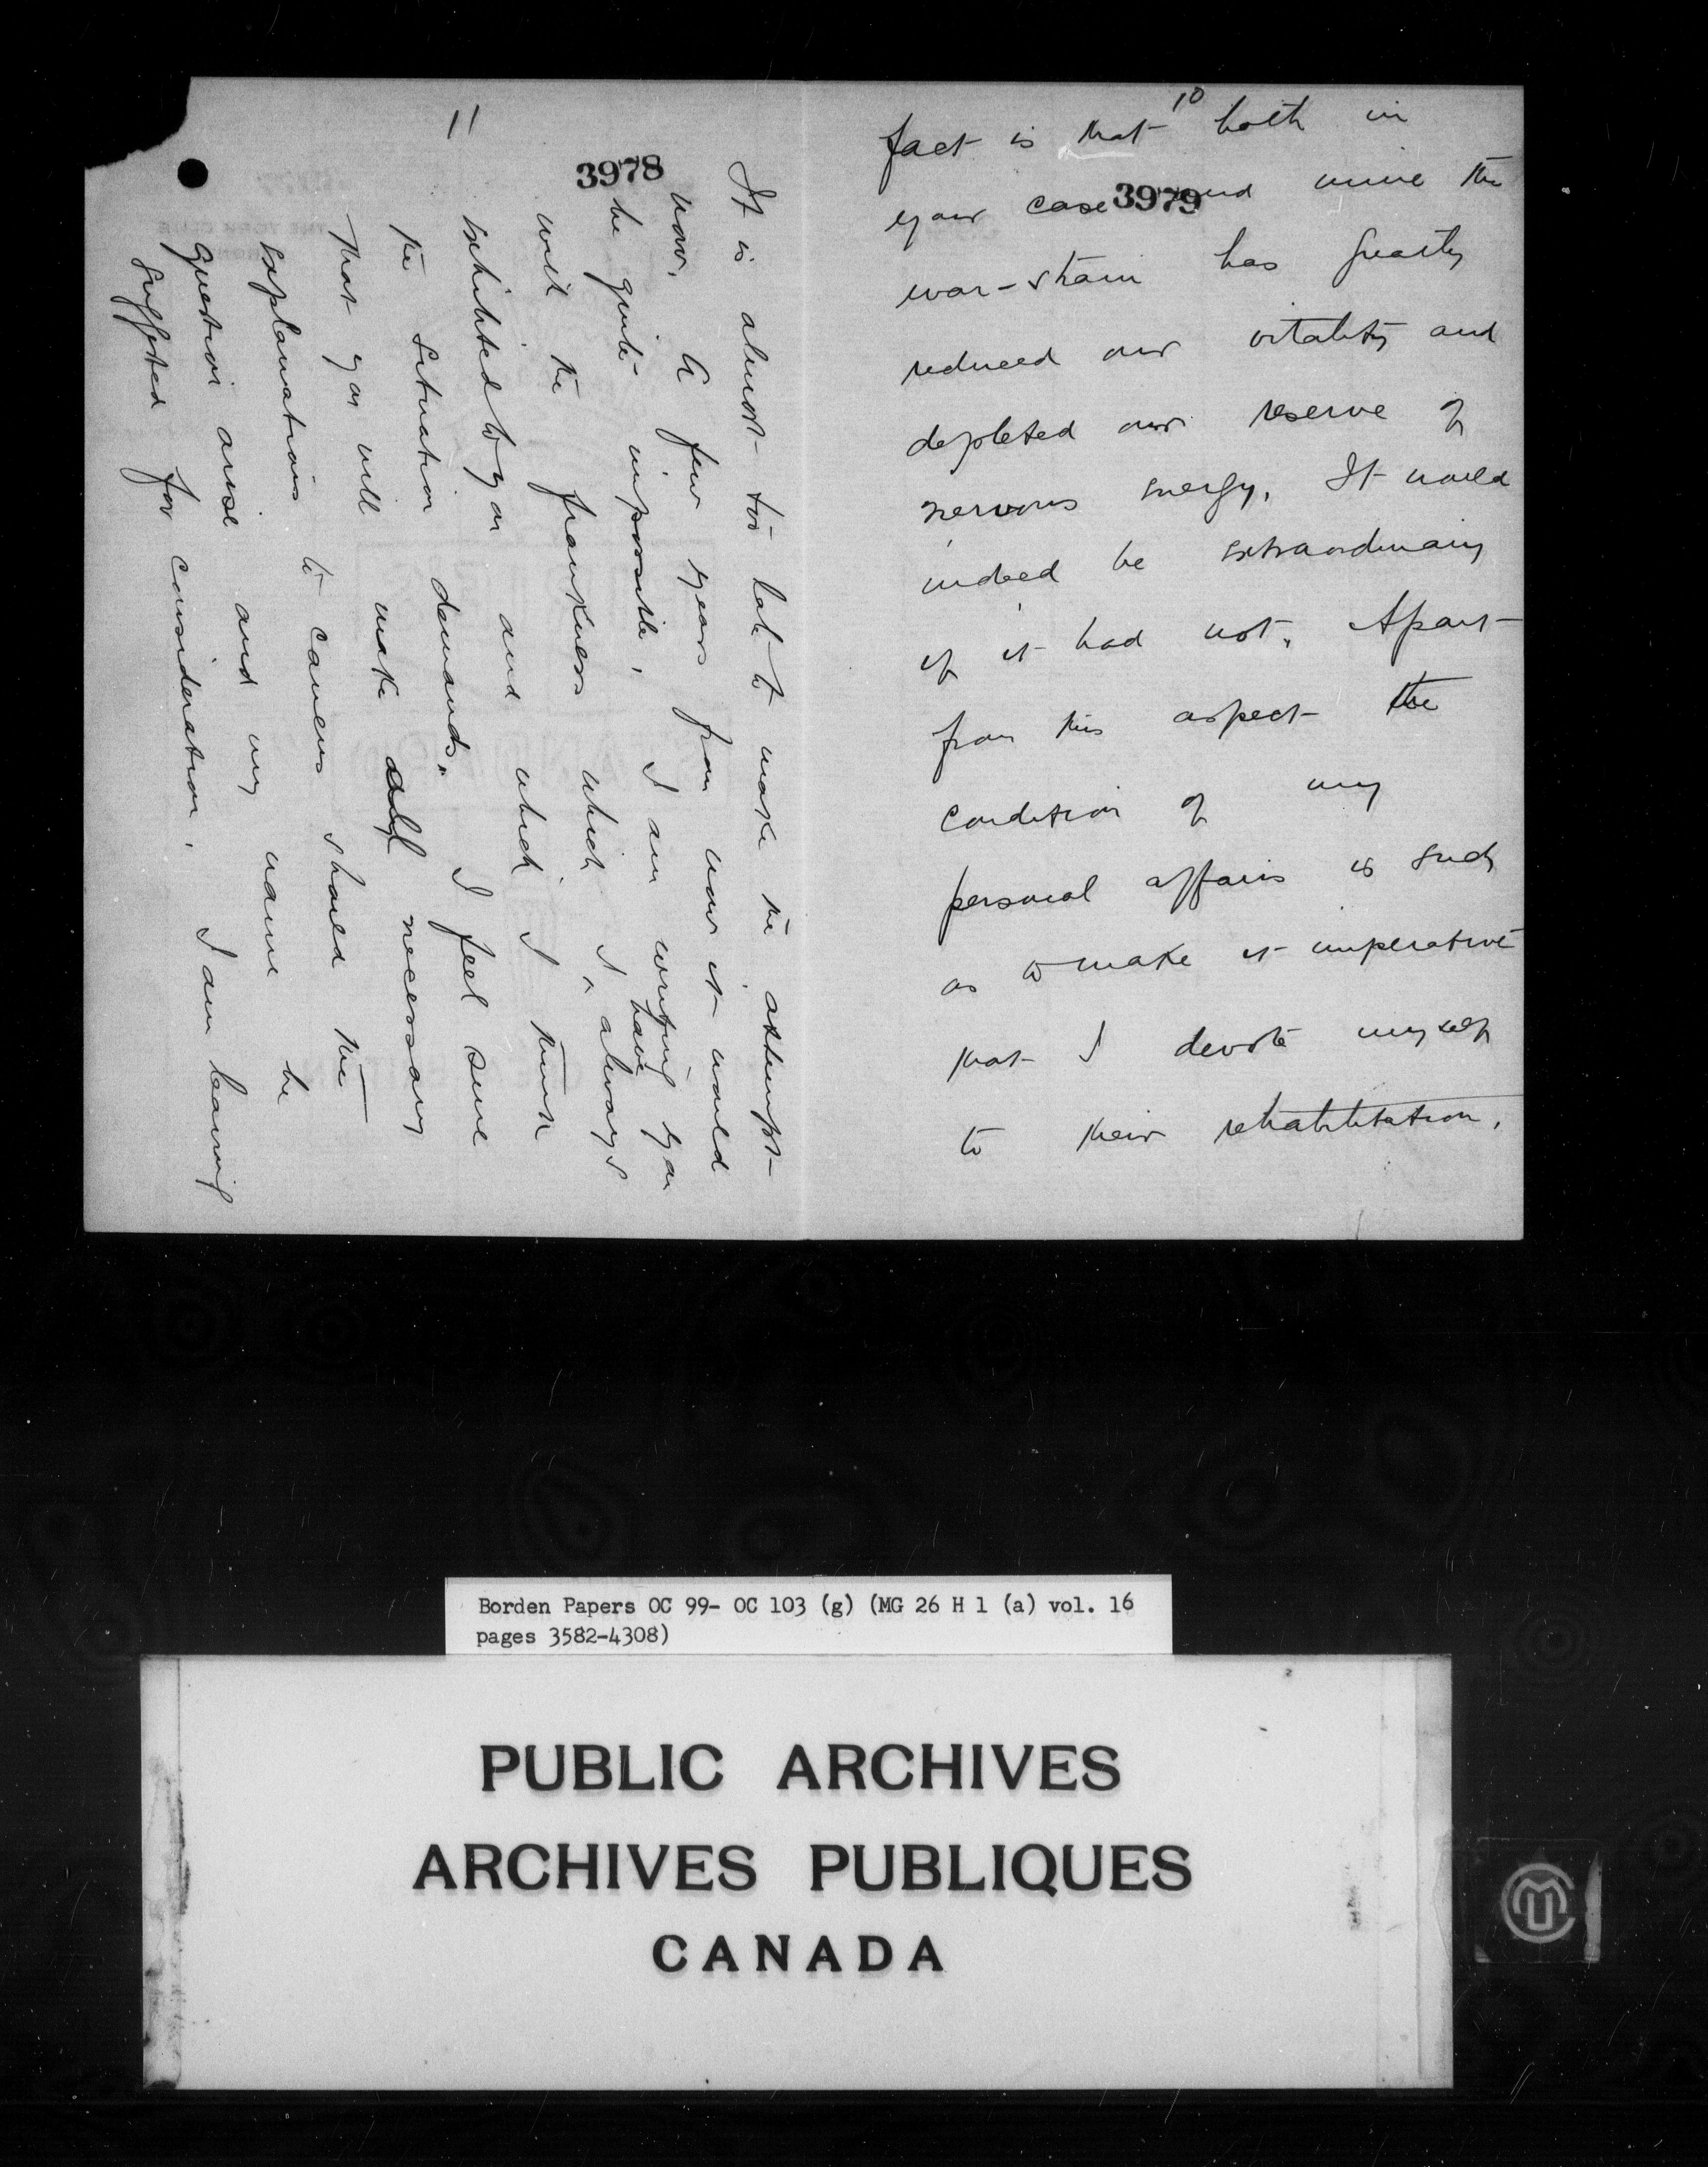 10
fact is that both in
3979
your case and mine the
war-strain has greatly
reduced our vitality and
depleted our reserve of
nervous energy. It would
indeed be extraordinary
if it had not. Apart
from this aspect the
condition of my
personal affairs is such
as to make it imperative
that I devote myself
to their rehabilitation.
11
3978
It is almost too late to make the attempt
now. A few years from now it would
be quite impossible. I am writing you
with the frankness which I ^ have always
exhibited to you and which I think
the situation demands. I feel sure
that you will make all necessary
explanations to caucus should the
question arise and my name be
suggested for consideration. I am leaving
Borden Papers OC 99- OC 103 (g) (MG 26 H 1 (a) vol. 16
pages 3582-4308)
PUBLIC ARCHIVES
ARCHIVES PUBLIQUES
CANADA